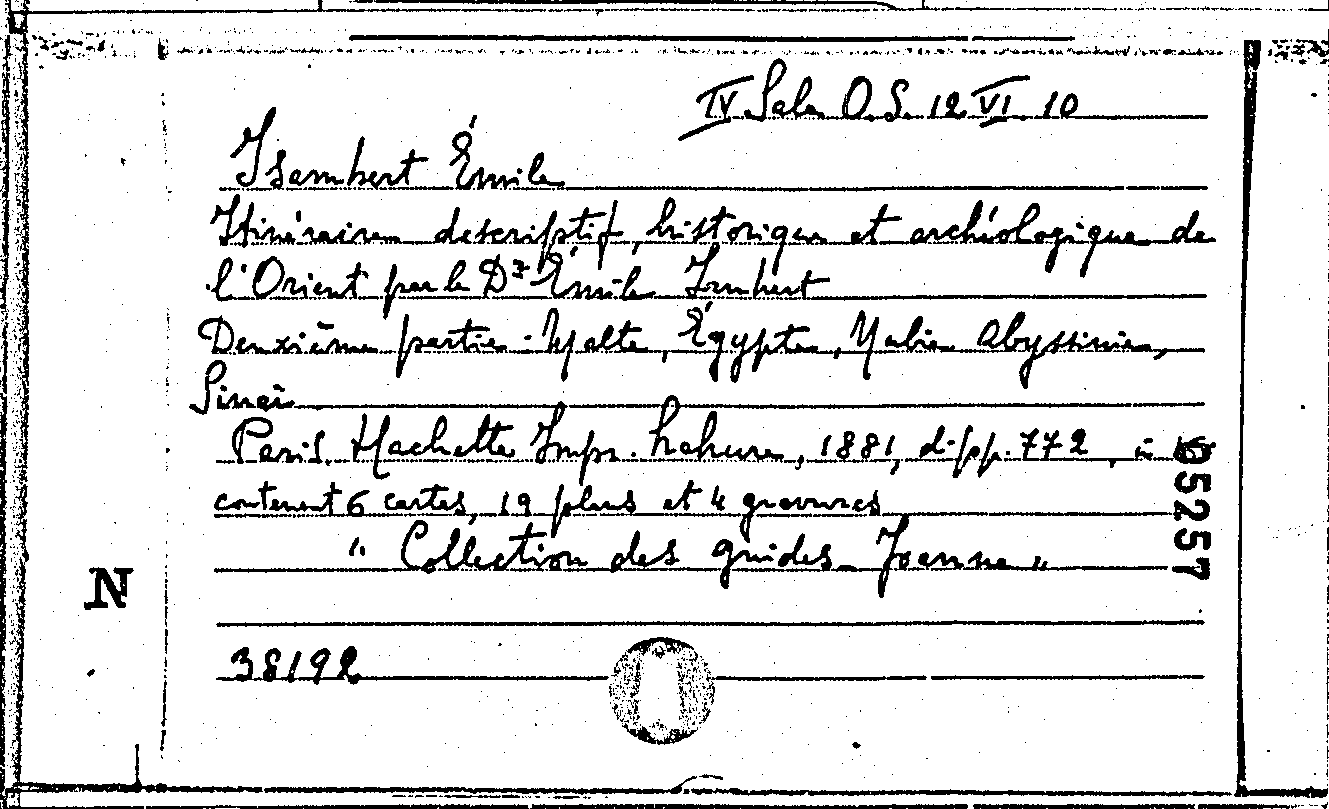 IV Sala O.S. 12 VI. 10
Isambert Émile
Itinéraire descriptif, historique et archéologique de
l'Orient par le Dr Émile Isambert
Deuxième partie: Malte, Égypte, Nubie Abyssinie,
Sinaï
Paris. Hachette Impr. Lahure, 1881, di pp. 772, in 16
contenent 6 cartes, 19 plans et 4 gravures
" Collection des guides Joanne "
N
05257
38192